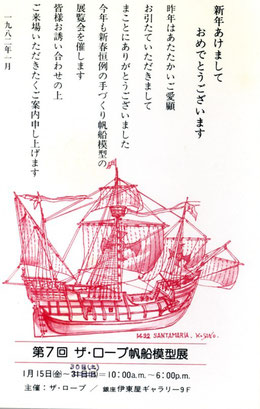 新年あけまして
おめでとうございます
昨年はあたたかいご愛顧
お引たていただきまして
まことにありがとうございました
今年も新春恒例の手づくり帆船模型の
展覧会を催します
皆様お誘い合わせの上
ご来場いただきたくご案内申し上げます
一九八二年一月
1492 SANTAMARIA.
第7回 ザ・ロープ帆船模型展
30日(土)
1月15日(金)~31日(日)=10:00a.m.~6:00p.m.
主催:ザ・ロープ/銀座伊東屋ギャラリー9F